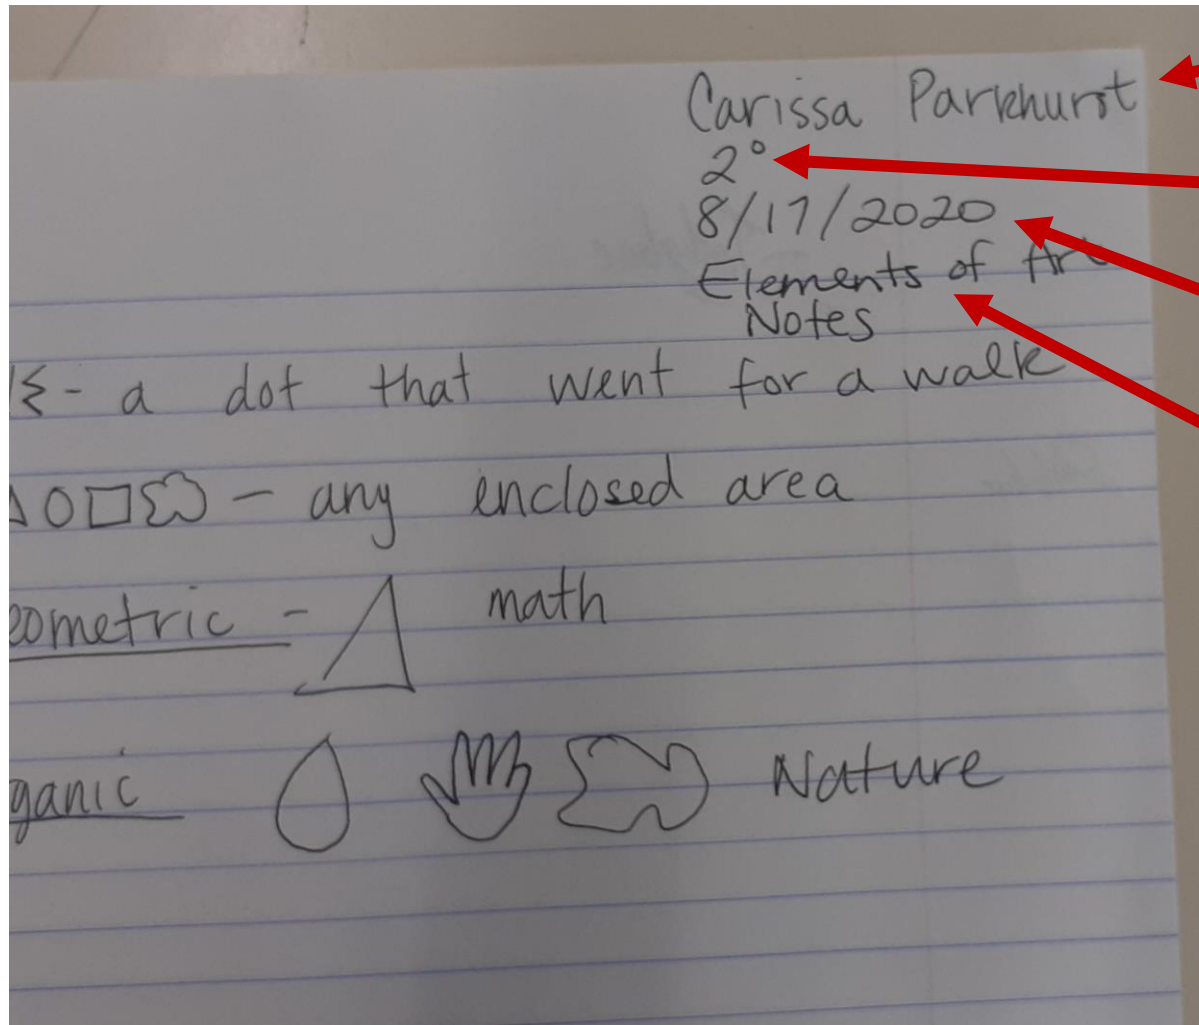 Carissa Parkhurst
2°
8/17/2020
Elements of Art
Notes
- a dot that went for a walk
- any enclosed area
eometric - math
ganic Nature